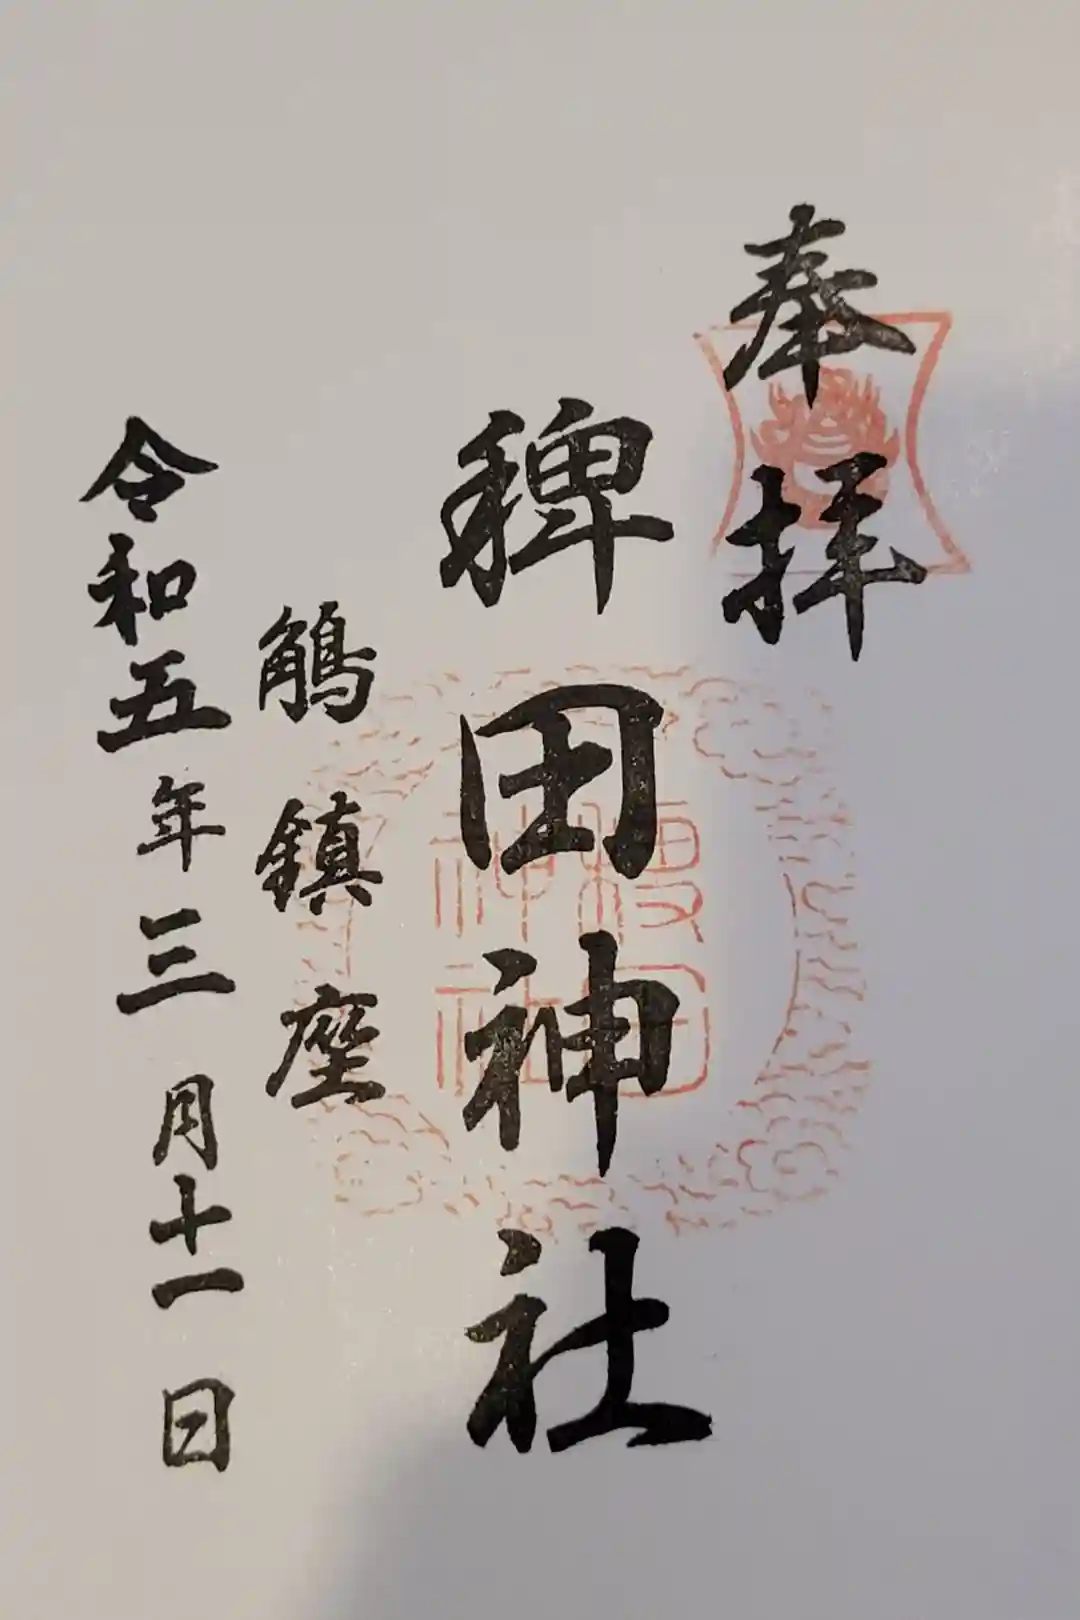 奉拝
稗田神社
鵤鎮座
令和五年三月十一日
稗田
神社